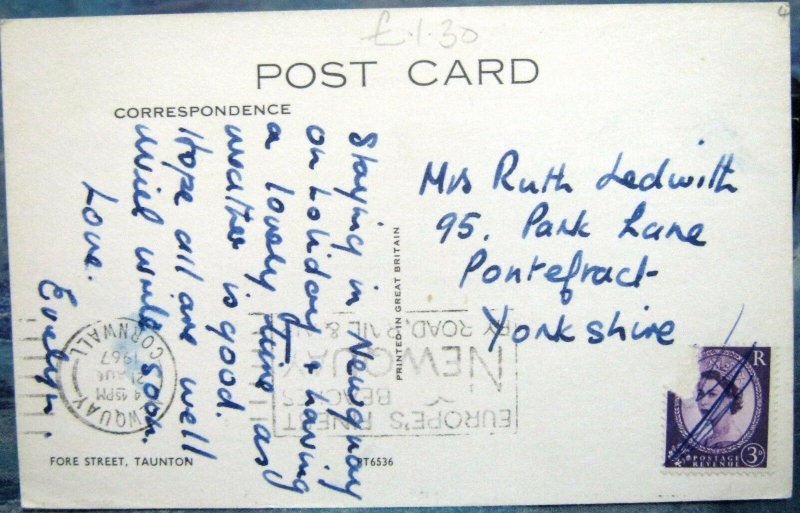 £.1.30
POST CARD
CORRESPONDENCE
Staying in Newquay
on holiday & having
a lovely time as
weather is good.
Hope all are well
Love.
Evelyn.
Mrs Ruth Ledwith
95. Park Lane
Pontefract
Yorkshire
PRINTED IN GREAT BRITAIN
BY ROAD, RAIL &
NEWQUAY
BEACHES
EUROPE'S FINEST
NEWQUAY
4 45PM
1967
CORNWALL
R
POSTAGE
REVENUE
3D
FORE STREET, TAUNTON
T6536